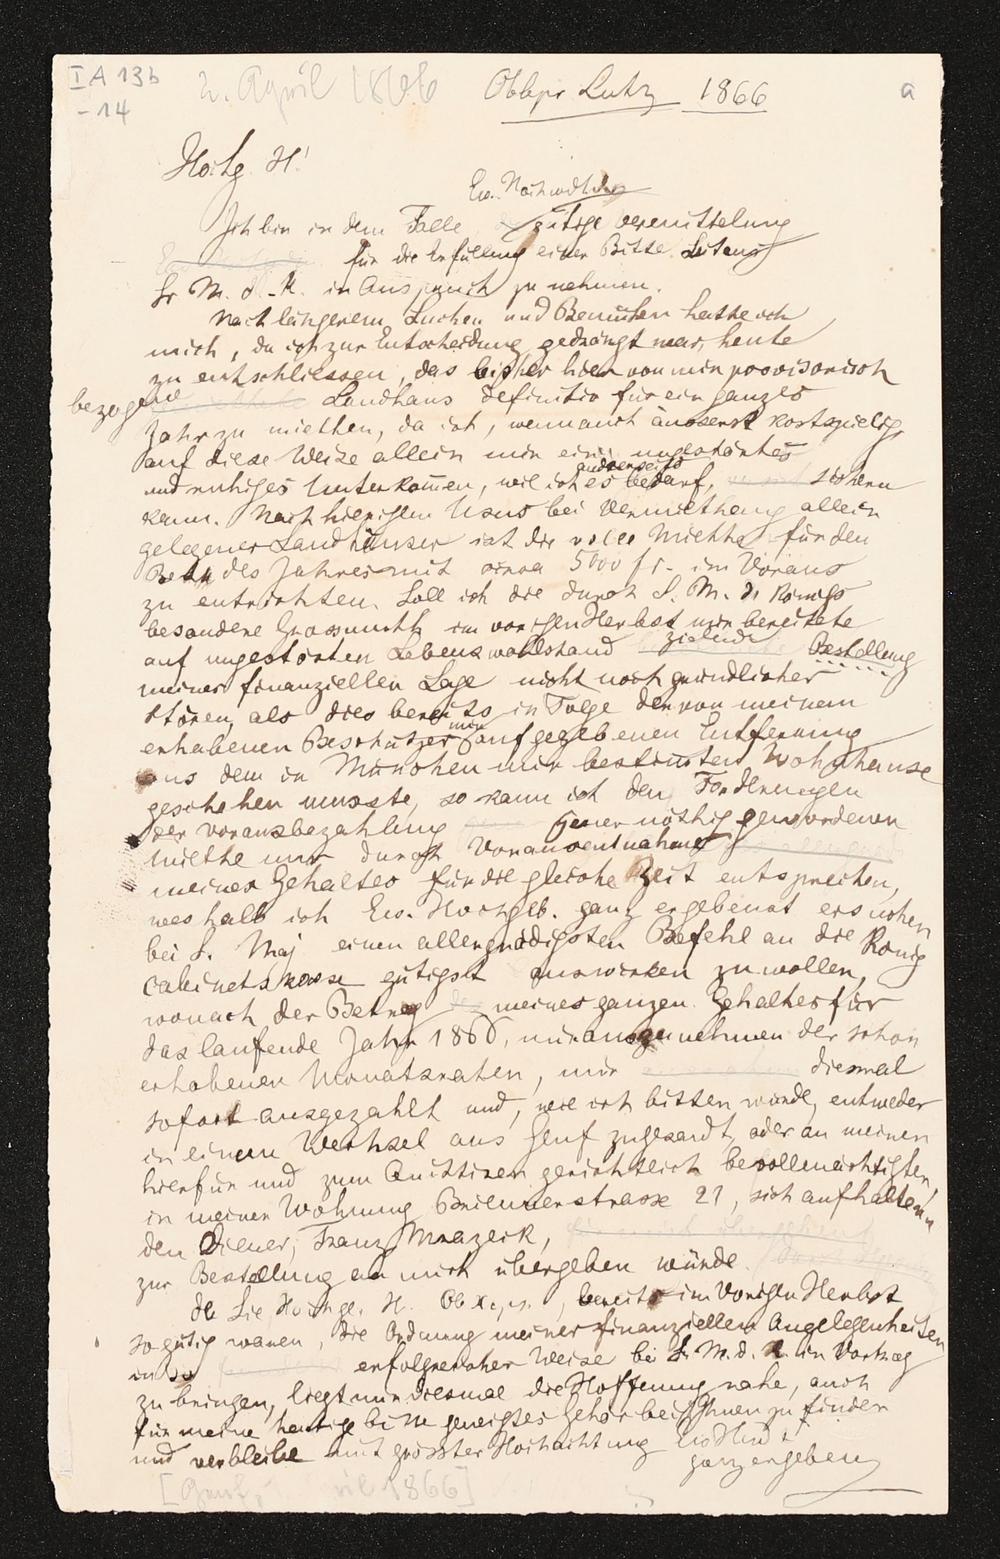 I A 13b
-14
2. April 1866
Obbpr Lutz 1866
a
Hochg. H!
Ew. Hochwohlg.
Ich bin in dem Falle gütige Vermittelung
für die Erfüllung einer Bitte Seitens
Sr M. d. K. in Anspruch zu nehmen.
Nach längerem Suchen und Bemühen hatte ich
mich, da ich zur Entscheidung gedrängt war, heute
zu entschliessen, das bisher hier von mir provisorisch
bezogene Landhaus definitiv für ein ganzes
Jahr zu miethen, da ich, wenn auch äusserst kostspielig
auf diese Weise allein mir ein ungestörtes
und ruhiges Unterkommen, wie ich es andrerseits bedarf, sichern
kann. Nach hiesigem Usus bei Vermiethung allein
gelegener Landhäuser ist die volle Miethe für den
des Jahres mit circa 5000 fr. im Voraus
zu entrichten. Soll ich die durch S. M. ds Königs
besondere Grossmuth im vorigen Herbst mir bereitete
auf ungestörten Lebenswohlstand zielende Bestellung
meiner finanziellen Lage nicht noch gründlicher
stören, als dies bereits in Folge der von meinem
erhabenen Beschützer mir aufgegebenen Entfernung
aus dem in München mir bestimten Wohnhause
geschehen musste, so kann ich den Forderungen
der Vorausbezahlung jener nöthig gewordenen
Miethe nur durch Vorausentnahme
meines Gehaltes für die gleiche Zeit entsprechen,
weshalb ich Ew. Hochgeb. ganz ergebenst ersuchen
bei S. Maj einen allergnädigsten Befehl an die König
Cabinetskasse gütigst auswirken zu wollen,
wonach der Betrag meines ganzen Gehaltes für
das laufende Jahr 1866, nur ausgenommen der schon
erhobenen Monatsraten, mir diesmal
sofort ausgezahlt und, wie ich bitten würde, entweder
in einem Wechsel aus Genf zugesandt, oder an meinen
hierfür und zum Quittiren gerichtlich bevollmächtigten,
in meiner Wohnung Briennerstrasse 21, sich aufhalten-
den Diener, Franz Mrazeck,
zur Bestellung an mich übergeben würde.
da Sie Hochge. H. bereits im vorigen Herbst
so gütig waren, die Ordnung meiner finanziellen Angelegenheiten
in so erfolgreicher Weise bei S. M. d. K. in Vortrag
zu bringen, liegt mir diesmal die Hoffnung nahe, auch
für meine heutige bitte geneigtes Gehör bei Ihnen zu finden
und verbleibe mit grösster Hochachtung
ganz ergeben
[Genf, 1866]